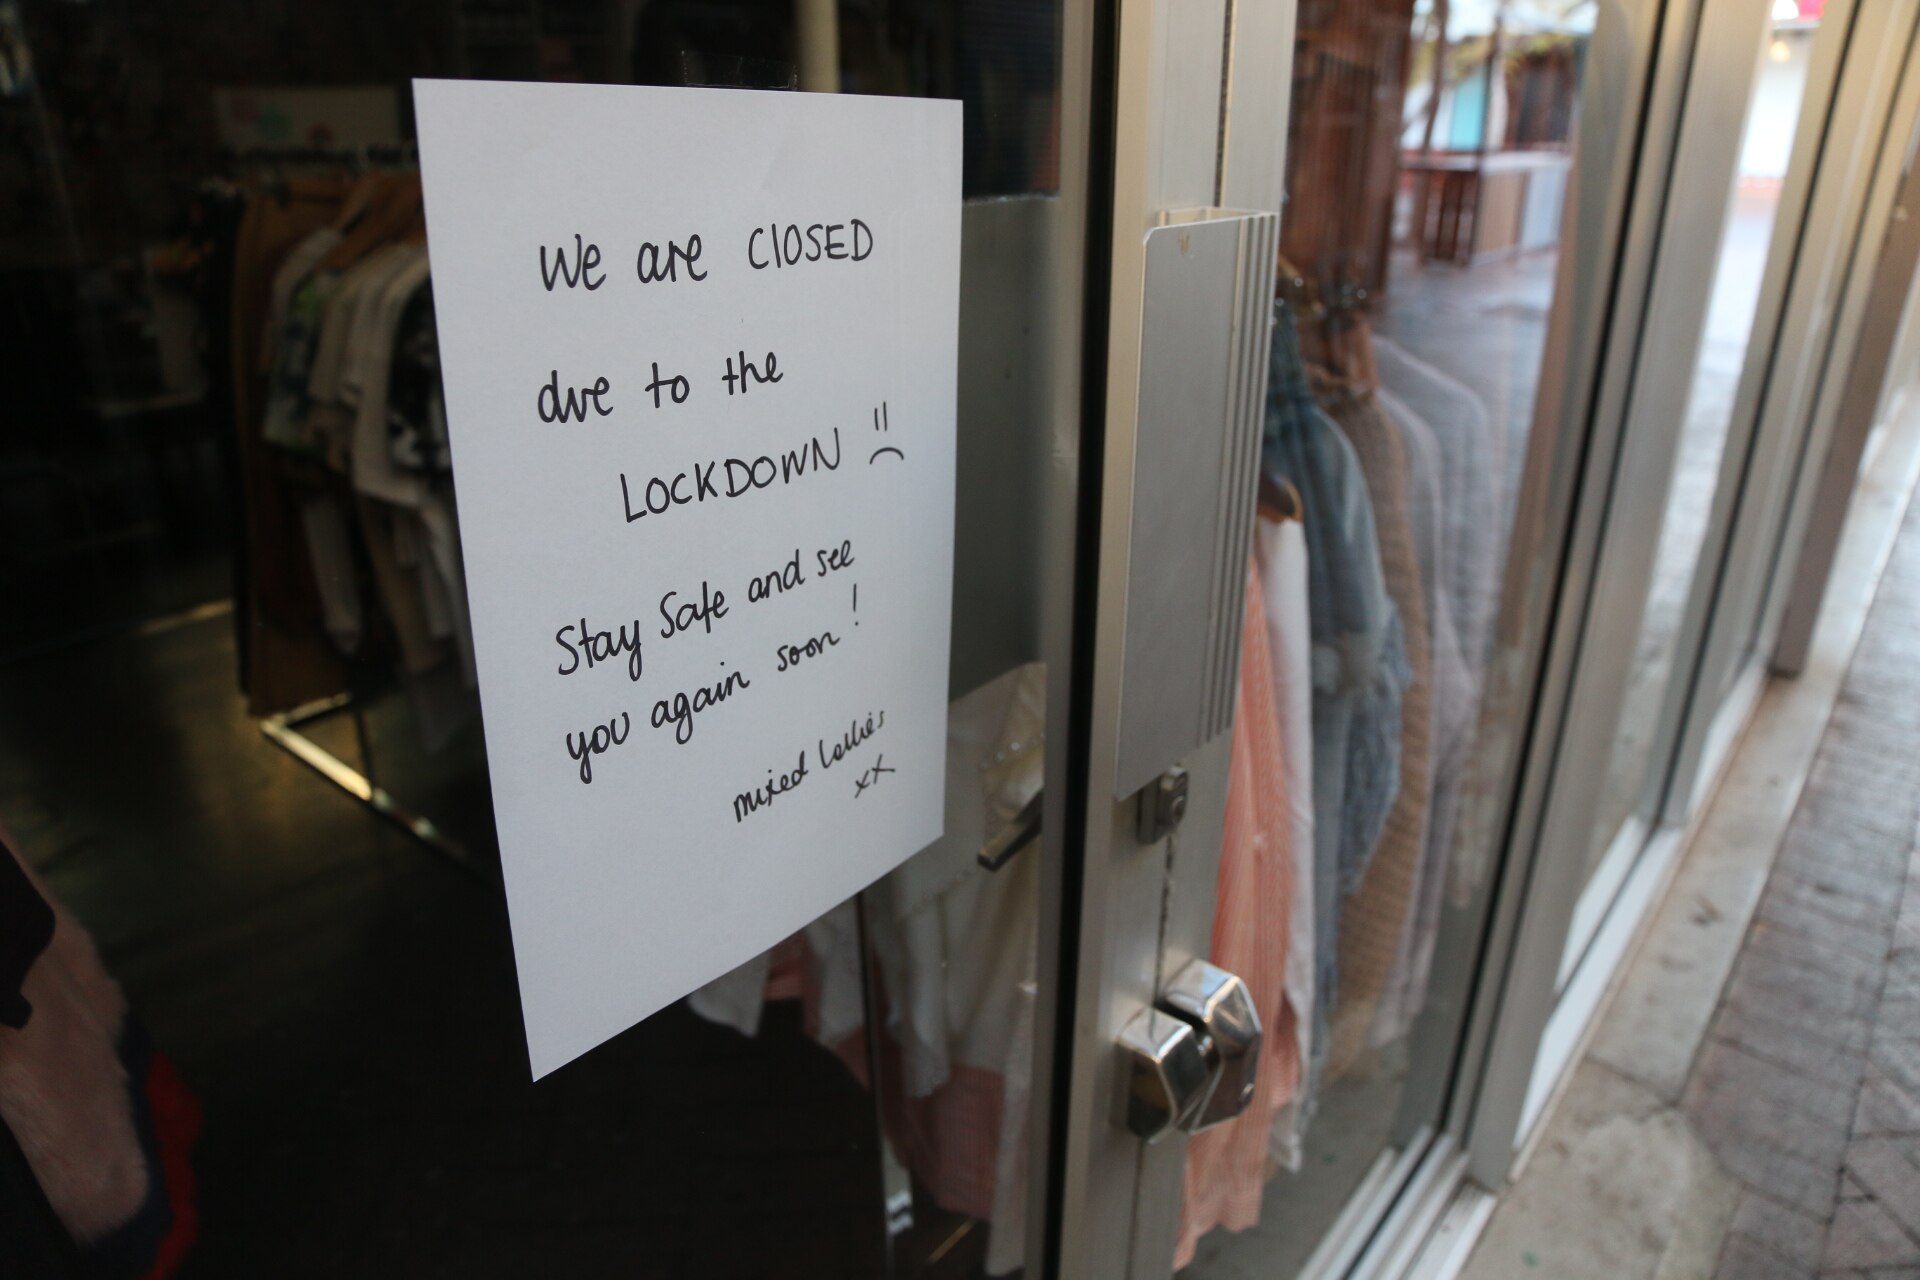 We are CLOSED
due to the
LOCKDOWN
Stay Safe and see
you again soon!
mixed lollies
xx